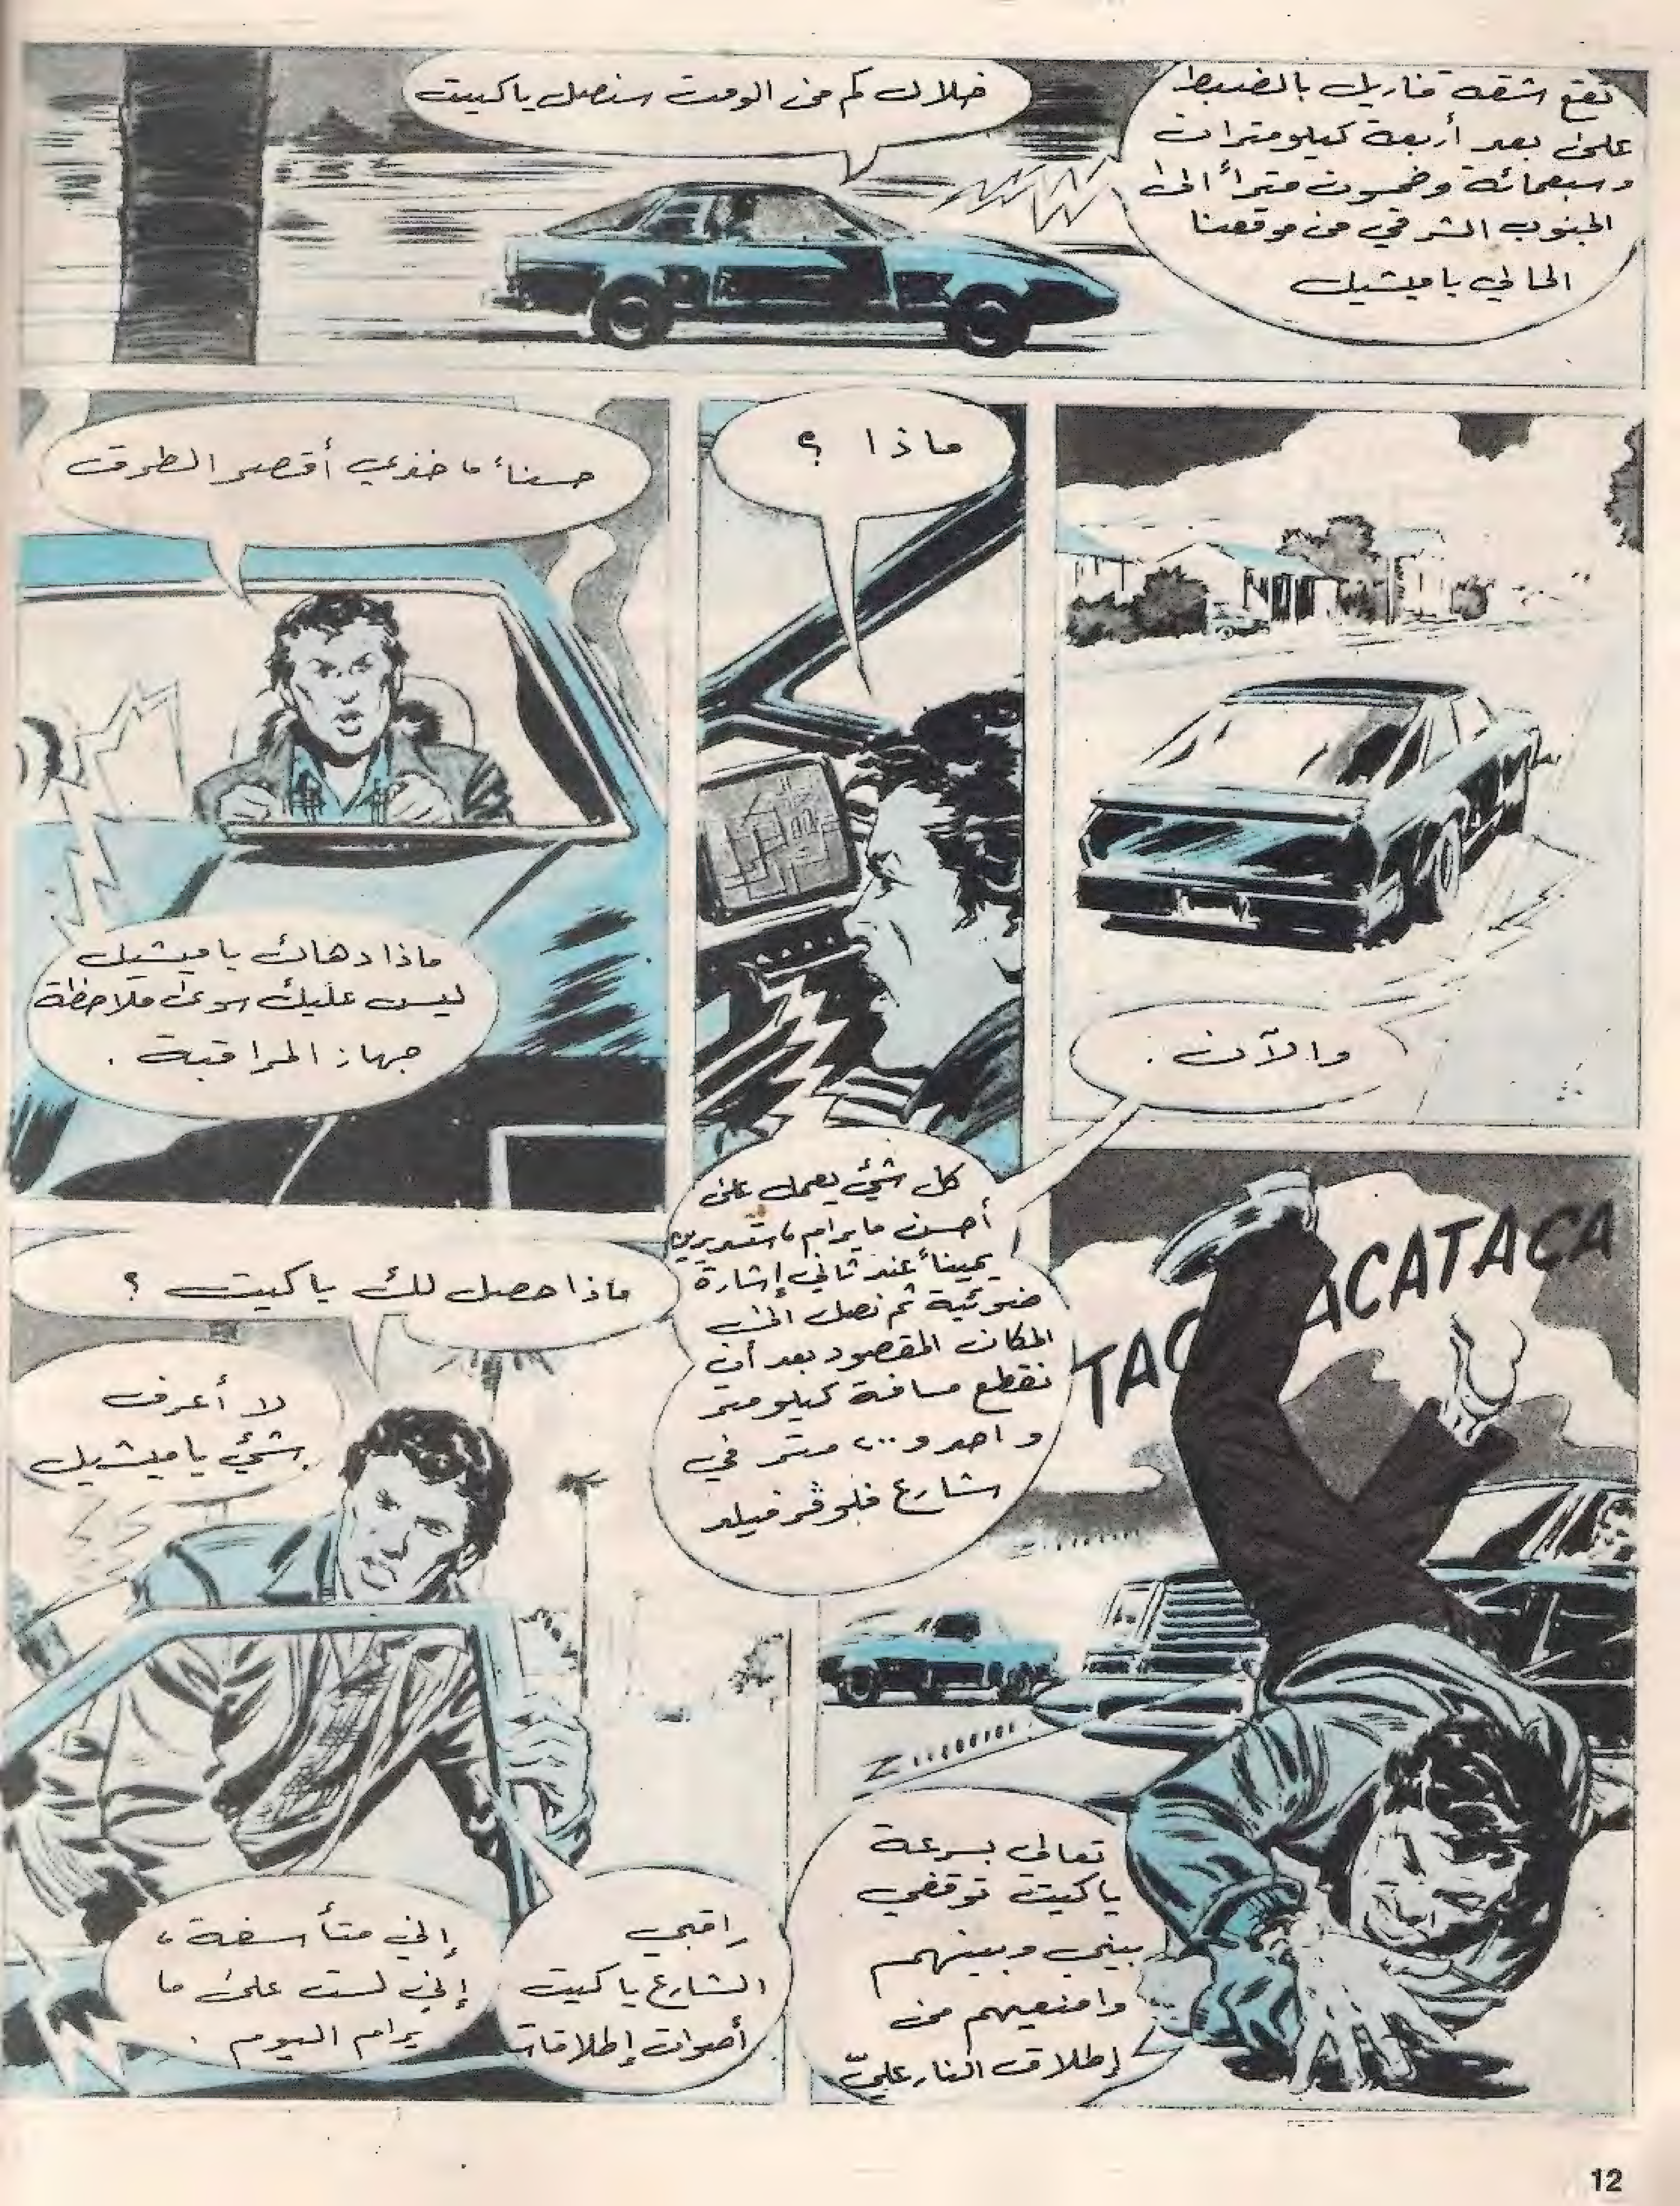 تقع شقة فاريل بالضبط
على بعد أربعة كيلومترات
وسبعمائة وخمسون متراً الى
الجنوب الشرقي من موقعنا
الحالي يا ميشيل
خلال كم من الوقت سنصل يا كيت
والآن .
ماذا ؟
كل شيء يعمل على
أحسن ما يرام، ستديرين
يميناً عند ثاني إشارة
ضوئية ثم نصل الى
المكان المقصود بعد أن
نقطع مسافة كيلومتر
واحد و ٢٠٠ متر في
شارع فلوڤر فيلد
حسناً، خذي أقصر الطرق
ماذا دهاك يا ميشيل
ليس عليك سوى ملاحظة
جهاز المراقبة .
TACATACATACA
تعالي بسرعة
يا كيت توقفي
بيني وبينهم
وامنعيهم من
إطلاق النار عليّ
ماذا حصل لك يا كيت ؟
لا أعرف
شيء يا ميشيل
راقبي
الشارع يا كيت
أصوات إطلاقات
إني متأسفة ،
إني لست على ما
يرام اليوم .
12